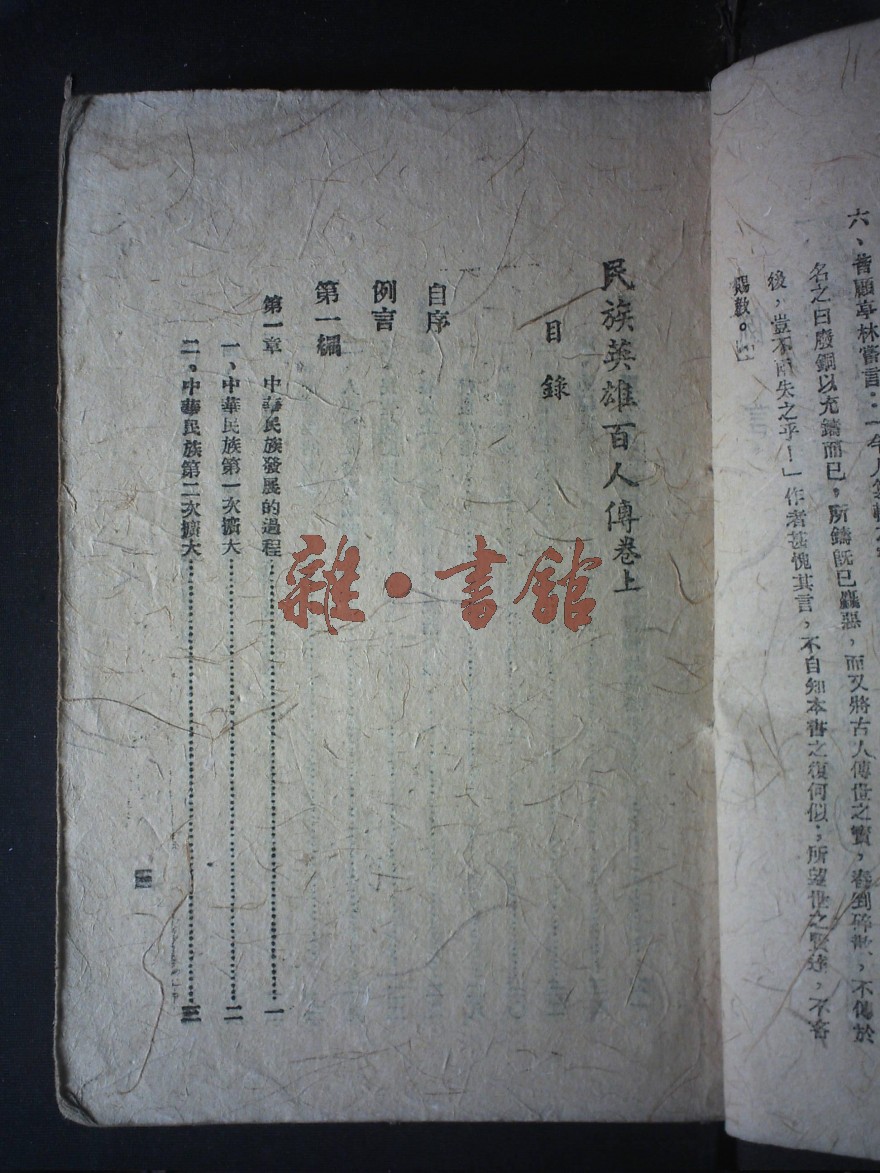 六、昔顧亭林嘗言：「今人纂輯之書
名之曰廢銅以充鑄而已，所鑄既已麤惡，而又將古人傳世之寶，舂剉碎散，不傳於
後，豈不兩失之乎！」作者甚愧其言，不自知本書之復何似；所望世之賢達，不吝
賜敎。
民族英雄百人傳卷上
目錄
自序
例言
第一編
第一章 中華民族發展的過程……一
一、中華民族第一次擴大……二
二、中華民族第二次擴大……三
雜·書館